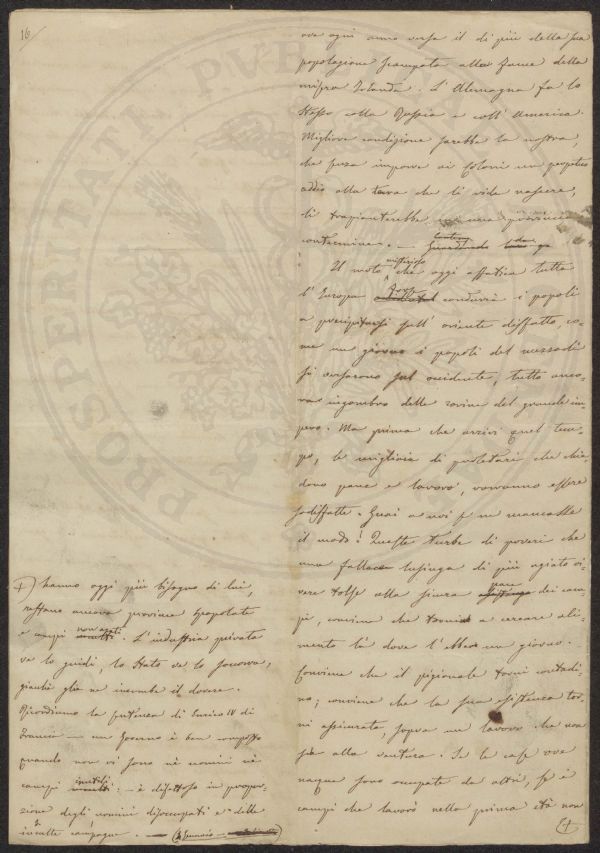 16
ove ogni anno versa il di più della sua
popolazione scampata alla fame della
misera Irlanda. L'Alemagna fa lo
stesso colla Russia e coll'America.
Migliore condizione sarebbe la nostra,
che senza imporre ai coloni un perpetuo
addio alla terra che li vide nascere,
li trapianterebbe in una provincia
contermine. —
Il moto misterioso che oggi affatica tutta
l'Europa forse condurrà i popoli
a precipitarsi sull'oriente disfatto, co-
me un giorno i popoli del
si versarono sul occidente, tutto anco-
ra ingombro delle rovine del grande im-
pero. Ma prima che arrivi quel tem-
po, le migliaia di proletari che chie-
dono pane e lavoro, vorranno essere
sodisfatte. Guai a noi se ne mancasse
il modo! Queste turbe di poveri che
una fallace lusinga di più agiato vi-
vere tolse alla sicura pace dei cam-
pi, conviene che tornino a cercare ali-
mento là dove l'ebbero un giorno.
Conviene che il pigionale torni contadi-
no; conviene che la sua esistenza tor-
ni assicurata, sopra un lavoro che non
sia alla ventura. Se le case ove
nacque sono occupate da altri, se i
campi che lavorò nella prima età non
(+)
+) hanno oggi più bisogno di lui,
restano ancora provincie spopolate
e campi non arati. L'industria privata
ve lo guidi, lo Stato ve lo soccorra,
giacché glie ne incombe il dovere.
Ricordiamo la sentenza di Enrico IV di
Francia — un Governo è ben composto
quando non vi sono nè uomini nè
campi inutili: — è difettoso in propor-
zione degli uomini disoccupati e delle
inculte campagne. —
PROSPERITATI PUBLICAE